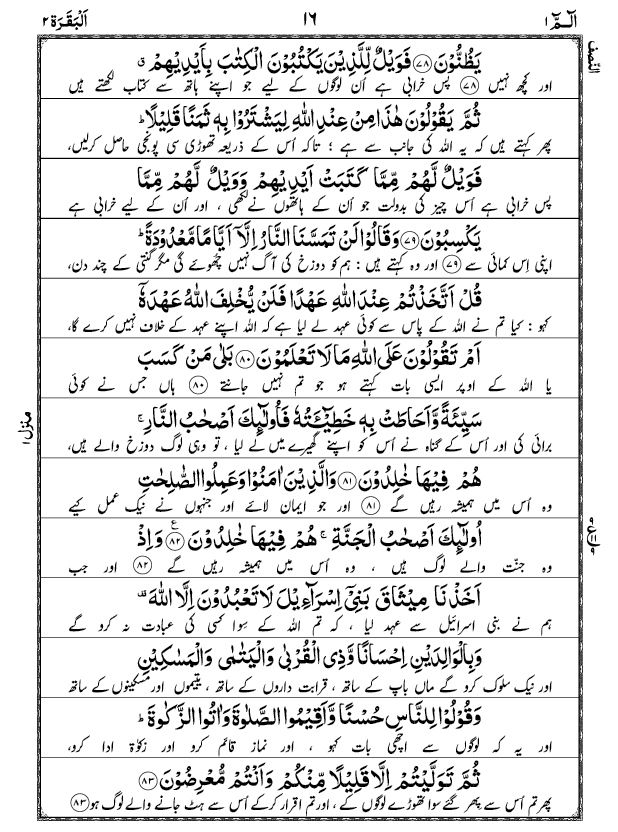 الٓـمّٓ ١ ١٦ اَلْبَقَرَة ٢
النّصف
يَظُنُّوْنَ ﴿٧٨﴾ فَوَيْلٌ لِّلَّذِيْنَ يَكْتُبُوْنَ الْكِتٰبَ بِاَيْدِيْهِمْ ق
اور کچھ نہیں ﴿٧٨﴾ پس خرابی ہے اُن لوگوں کے لیے جو اپنے ہاتھ سے کتاب لکھتے ہیں
ثُمَّ يَقُوْلُوْنَ هٰذَا مِنْ عِنْدِ اللّٰهِ لِيَشْتَرُوْا بِهٖ ثَمَنًا قَلِيْلًا ؕ
پھر کہتے ہیں کہ یہ اللہ کی جانب سے ہے ؛ تاکہ اُس کے ذریعہ تھوڑی سی پونجی حاصل کرلیں،
فَوَيْلٌ لَّهُمْ مِّمَّا كَتَبَتْ اَيْدِيْهِمْ وَوَيْلٌ لَّهُمْ مِّمَّا
پس خرابی ہے اُس چیز کی بدولت جو اُن کے ہاتھوں نے لکھی ، اور اُن کے لیے خرابی ہے
يَكْسِبُوْنَ ﴿٧٩﴾ وَقَالُوْا لَنْ تَمَسَّنَا النَّارُ اِلَّاۤ اَيَّامًا مَّعْدُوْدَةً ؕ
اپنی اِس کمائی سے ﴿٧٩﴾ اور وہ کہتے ہیں : ہم کو دوزخ کی آگ نہیں چھوئے گی مگر گنتی کے چند دن،
قُلْ اَتَّخَذْتُمْ عِنْدَ اللّٰهِ عَهْدًا فَلَنْ يُّخْلِفَ اللّٰهُ عَهْدَهٗۤ
کہو : کیا تم نے اللہ کے پاس سے کوئی عہد لے لیا ہے کہ اللہ اپنے عہد کے خلاف نہیں کرے گا،
اَمْ تَقُوْلُوْنَ عَلَى اللّٰهِ مَا لَا تَعْلَمُوْنَ ﴿٨٠﴾ بَلٰى مَنْ كَسَبَ
یا اللہ کے اوپر ایسی بات کہتے ہو جو تم نہیں جانتے ﴿٨٠﴾ ہاں جس نے کوئی
سَيِّئَةً وَّاَحَاطَتْ بِهٖ خَطِيْٓـَٔتُهٗ فَاُولٰٓئِكَ اَصْحٰبُ النَّارِ ۚ
برائی کی اور اُس کے گناہ نے اُس کو اپنے گھیرے میں لے لیا ، تو وہی لوگ دوزخ والے ہیں،
منزل ١
هُمْ فِيْهَا خٰلِدُوْنَ ﴿٨١﴾ وَالَّذِيْنَ اٰمَنُوْا وَعَمِلُوا الصّٰلِحٰتِ
وہ اُس میں ہمیشہ رہیں گے ﴿٨١﴾ اور جو ایمان لائے اور جنہوں نے نیک عمل کیے
اُولٰٓئِكَ اَصْحٰبُ الْجَنَّةِ ۚ هُمْ فِيْهَا خٰلِدُوْنَ ﴿٨٢﴾ ع وَاِذْ
وہ جنّت والے لوگ ہیں ، وہ اُس میں ہمیشہ رہیں گے ﴿٨٢﴾ اور جب
اَخَذْنَا مِيْثَاقَ بَنِيْۤ اِسْرَآءِيْلَ لَا تَعْبُدُوْنَ اِلَّا اللّٰهَ
ہم نے بنی اسرائیل سے عہد لیا ، کہ تم اللہ کے سِوا کسی کی عبادت نہ کرو گے
وَبِالْوَالِدَيْنِ اِحْسَانًا وَّذِي الْقُرْبٰى وَالْيَتٰمٰى وَالْمَسٰكِيْنِ
اور نیک سلوک کرو گے ماں باپ کے ساتھ ، قرابت داروں کے ساتھ ، یتیموں اور مسکینوں کے ساتھ
وَقُوْلُوْا لِلنَّاسِ حُسْنًا وَّاَقِيْمُوا الصَّلٰوةَ وَاٰتُوا الزَّكٰوةَ ؕ
اور یہ کہ لوگوں سے اچھی بات کہو ، اور نماز قائم کرو اور زکوٰۃ ادا کرو،
ثُمَّ تَوَلَّيْتُمْ اِلَّا قَلِيْلًا مِّنْكُمْ وَاَنْتُمْ مُّعْرِضُوْنَ ﴿٨٣﴾
پھر تم اُس سے پھر گئے سوا تھوڑے لوگوں کے ، اور تم اقرار کرکے اُس سے ہٹ جانے والے لوگ ہو ﴿٨٣﴾